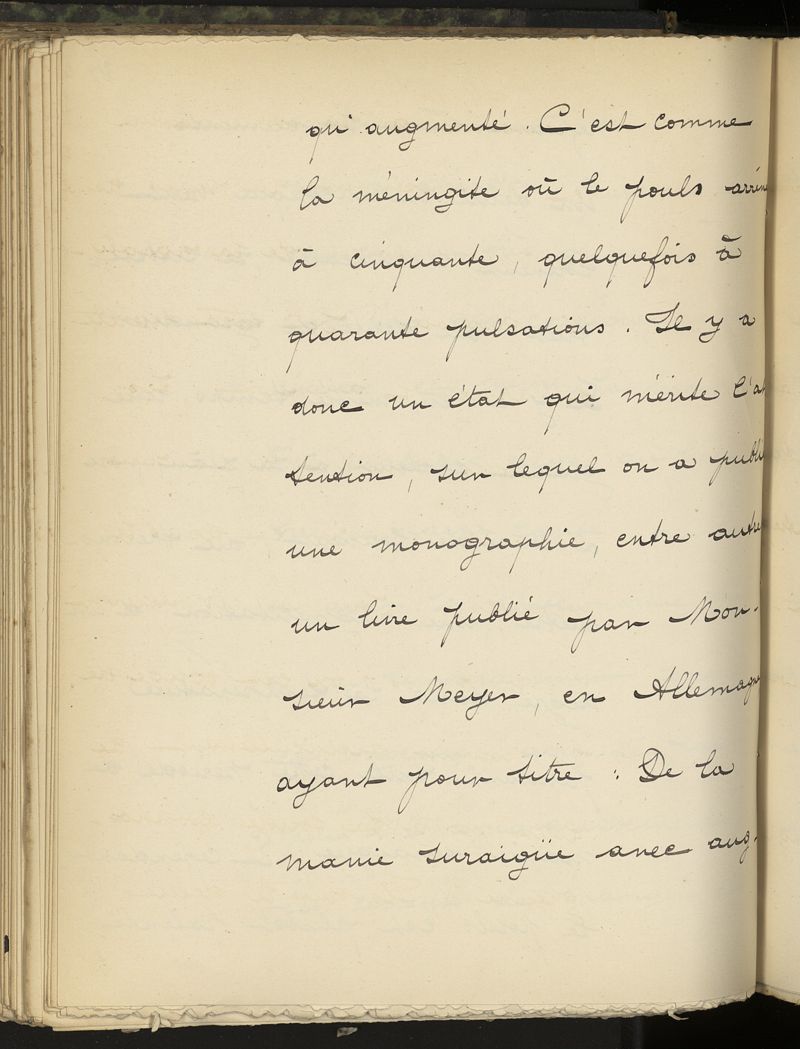 qui augmenté. C'est comme
la méningite où le pouls arrive
à cinquante, quelquefois à
quarante pulsations. Il y a
donc un état qui mérite l'at
tention, sur lequel on a publié
une monographie, entre autres
un livre publié par Mon-
sieur Meyer, en Allemagne
ayant pour titre : De la
manie suraigüe avec aug-